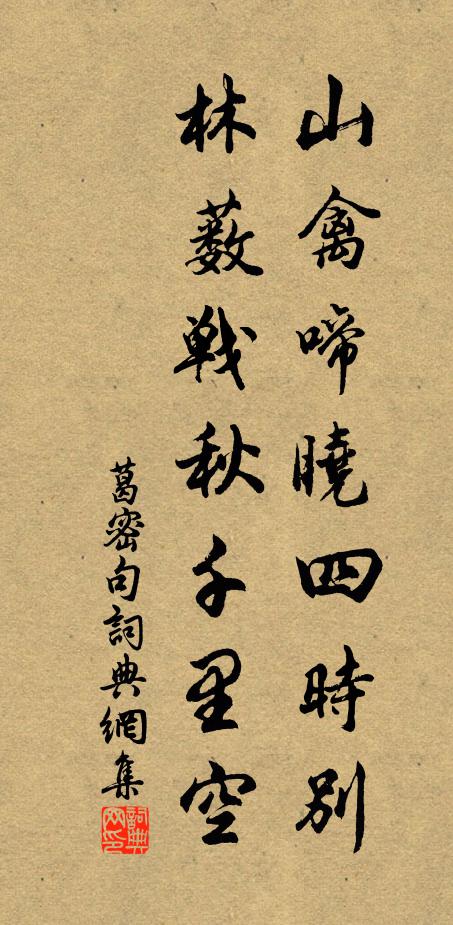 山禽啼曉四時別
林藪戰秋千里空
葛密句詞典網集
詞典網印